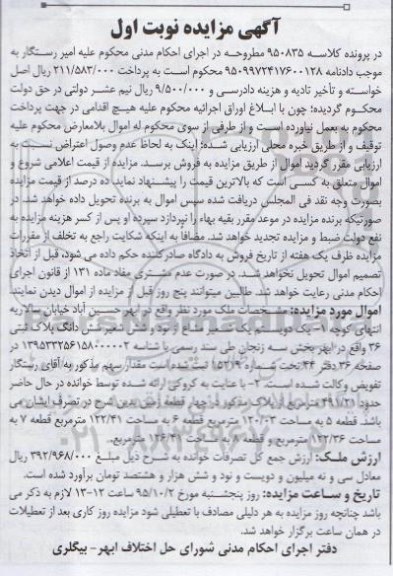 آگهی مزایده نوبت اول
در پرونده کلاسه ۹۵۰۸۳۵ مطروحه در اجرای احکام مدنی محکوم علیه امیر رستگار به
موجب دادنامه ۹۵۰۹۹۷۲۴۱۷۶۰۰۱۲۸ محکوم است به پرداخت ۲۱۱/۵۸۳/۰۰۰ ریال اصل
خواسته و تأخیر تادیه و هزینه دادرسی و ۹/۵۰۰/۰۰۰ ریال نیم عشر دولتی در حق دولت
محکوم گردیده؛ چون با ابلاغ اوراق اجرائیه محکوم علیه هیچ اقدامی در جهت پرداخت
محکوم به بعمل نیاورده است و از طرفی از سوی محکوم له اموال بلامعارض محکوم علیه
توقیف و از طریق خبره محلی ارزیابی شده؛ اینک به لحاظ عدم وصول اعتراض نسبت به
ارزیابی مقرر گردید اموال از طریق مزایده به فروش برسد. مزایده از قیمت اعلامی شروع و
اموال متعلق به کسی است که بالاترین قیمت را پیشنهاد نماید. ده درصد از قیمت مزایده
بصورت وجه نقد فی المجلس دریافت شده سپس اموال به برنده تحویل داده خواهد شد. در
صورتیکه برنده مزایده در موعد مقرر بقیه بهاء را نپردازد سپرده او پس از کسر هزینه مزایده به
نفع دولت ضبط و مزایده تجدید خواهد شد. مضافاً به اینکه شکایت راجع به تخلف از مقررات
مزایده ظرف یک هفته از تاریخ فروش به دادگاه صادرکننده حکم داده می شود، قبل از اتخاذ
تصمیم اموال تحویل نخواهد شد. در صورت عدم مشتری مفاد ماده ۱۳۱ از قانون اجرای
احکام مدنی رعایت خواهد شد. طالبین میتوانند پنج روز قبل از مزایده از اموال دیدن نمایند.
اموال مورد مزایده: مشخصات ملک مورد نظر واقع در ابهر حسین آباد خیابان سالاریه
انتهای کوچه ۱- یک دوم شعیر یک صد شعیر مشاع از نود و شش شعیر شش دانگ پلاک ثبتی
۳۶ واقع در ابهر بخش سه زنجان طی سند رسمی با شناسه ۱۳۹۵۳۳۲۵۶۱۵۸۰۰۰۰۰۲ در
صفحه ۲۶ دفتر ۴۴ تحت شماره ۱۵۲۱۹ ثبت شده است مقدار سهم مذکور به آقای رستگار
تفویض وکالت شده است. ۲- با عنایت به کروکی ارائه شده توسط خوانده در حال حاضر
حدود ۴۹۱/۲۱ مترمربع از پلاک مذکور در چهار قطعه زمین بدین شرح در تصرف ایشان می
باشد. قطعه ۵ به مساحت ۱۲۰/۰۳ مترمربع قطعه ۶ به مساحت ۱۲۲/۴۱ مترمربع قطعه ۷ به
مساحت ۱۲۲/۳۶ مترمربع و قطعه ۸ به مساحت ۱۲۶/۴۱ مترمربع.
ارزش ملک: ارزش جمع کل تصرفات خوانده به شرح ذیل مبلغ ۳۹۲/۹۶۸/۰۰۰ ریال
معادل سی و نه میلیون و دویست و نود و شش هزار و هشتصد تومان برآورد شده است.
تاریخ و ساعت مزایده: روز پنجشنبه مورخ ۹۵/۱۰/۲ ساعت ۱۲-۱۳ لازم به ذکر می
باشد چنانچه روز مزایده به هر دلیلی مصادف با تعطیلی شود مزایده روز کاری بعد از تعطیلات
در همان ساعت برگزار خواهد شد.
دفتر اجرای احکام مدنی شورای حل اختلاف ابهر- بیگلری